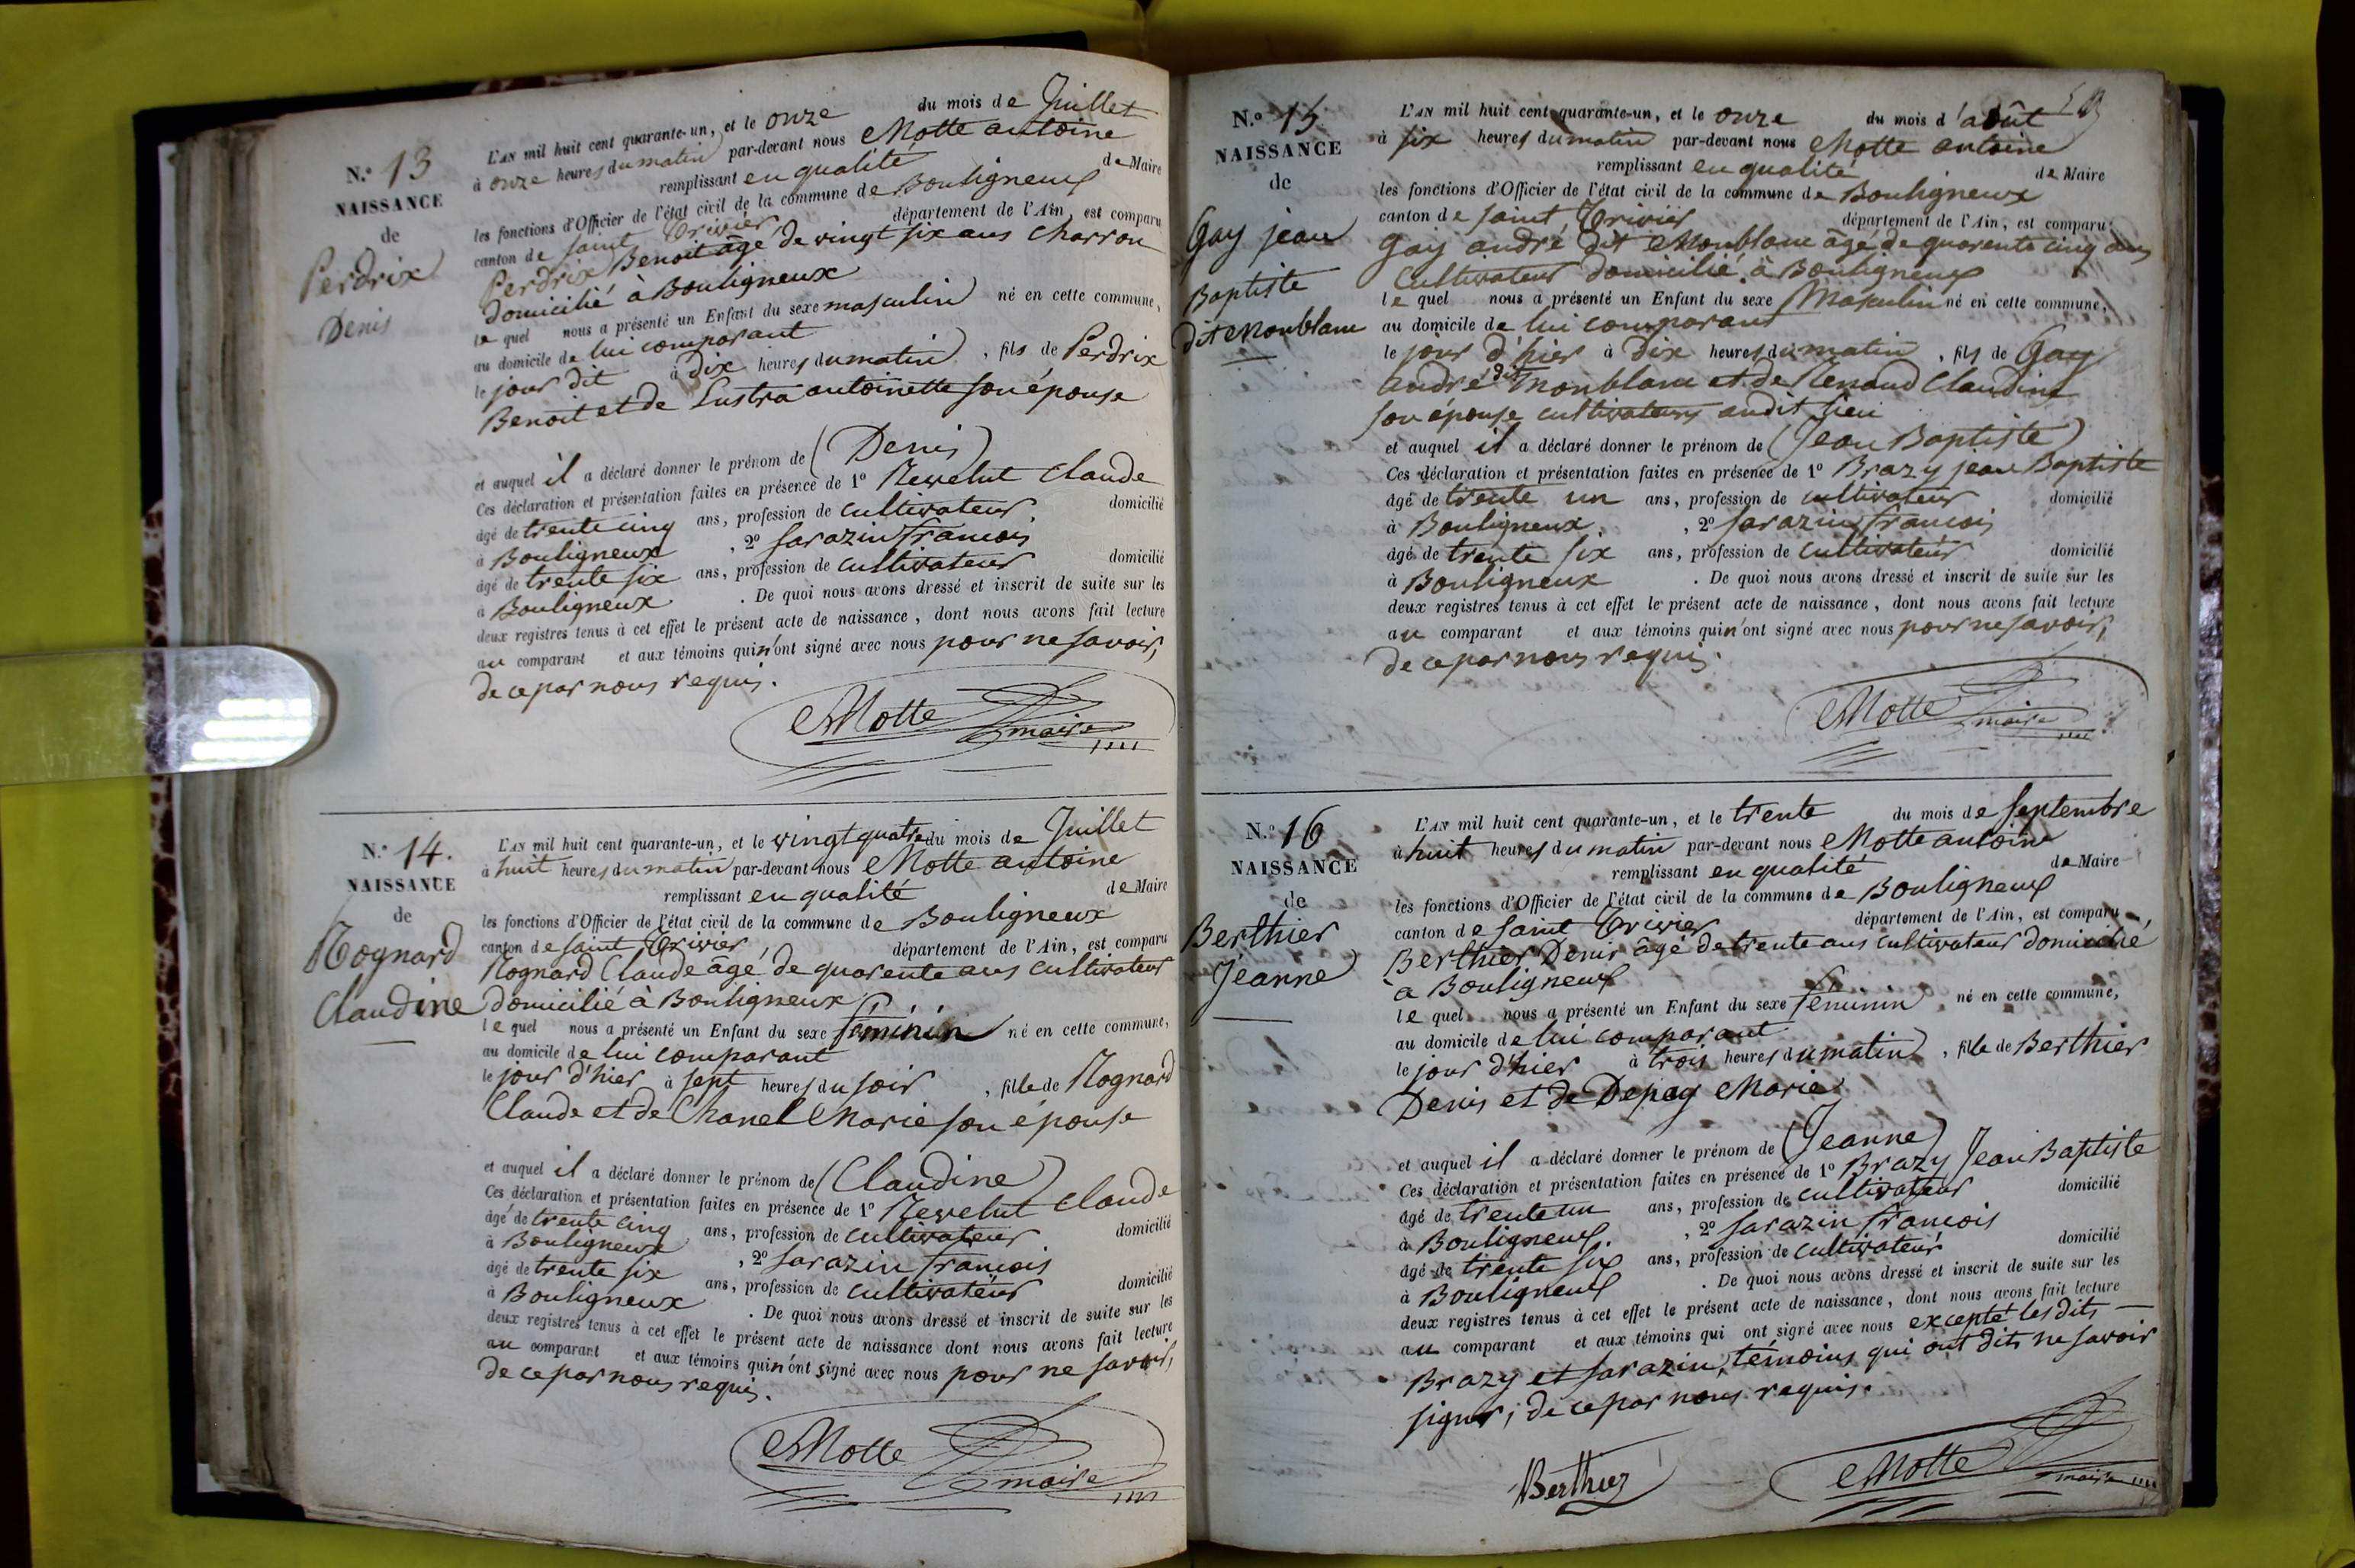 N.o 13
NAISSANCE
de
Perdrix
Denis
L'AN mil huit cent quarante-un, et le onze du mois de Juillet
à onze heures du matin par-devant nous Motte antoine
remplissant en qualité de Maire
les fonctions d'Officier de l'état civil de la commune de Bouligneux
canton de saint Trivier, département de l'Ain, est comparu
Perdrix Benoit âgé de vingt six ans charron
domicilié à Bouligneux
le quel nous a présenté un Enfant du sexe masculin né en cette commune,
au domicile de lui comparant
le jour dit à dix heures du matin, fils de Perdrix
Benoit et de Lustra antoinette son épouse
et auquel il a déclaré donner le prénom de (Denis)
Ces déclaration et présentation faites en présence de 1o Revelut Claude
âgé de trente cinq ans, profession de cultivateur domicilié
à Bouligneux, 2o Sarazin francois
âgé de trente six ans, profession de cultivateur domicilié
à Bouligneux. De quoi nous avons dressé et inscrit de suite sur les
deux registres tenus à cet effet le présent acte de naissance, dont nous avons fait lecture
au comparant et aux témoins qui n'ont signé avec nous pour ne savoir,
de ce par nous requis.
Motte
maire
N.o 14.
NAISSANCE
de
Rognard
Claudine
L'AN mil huit cent quarante-un, et le vingt quatre du mois de Juillet
à huit heures du matin par-devant nous Motte antoine
remplissant en qualité de Maire
les fonctions d'Officier de l'état civil de la commune de Bouligneux
canton de saint Trivier, département de l'Ain, est comparu
Rognard Claude âgé de quarente ans cultivateur
domicilié à Bouligneux
le quel nous a présenté un Enfant du sexe féminin né en cette commune,
au domicile de lui comparant
le jour d'hier à sept heures du soir, fille de Rognard
Claude et de Chanel Marie son épouse
et auquel il a déclaré donner le prénom de (Claudine)
Ces déclaration et présentation faites en présence de 1o Revelut Claude
âgé de trente cinq ans, profession de cultivateur domicilié
à Bouligneux, 2o Sarazin francois
âgé de trente six ans, profession de cultivateur domicilié
à Bouligneux. De quoi nous avons dressé et inscrit de suite sur les
deux registres tenus à cet effet le présent acte de naissance dont nous avons fait lecture
au comparant et aux témoins qui n'ont signé avec nous pour ne savoir,
de ce par nous requis.
Motte
maire
N.o 15
NAISSANCE
de
Gay jean
Baptiste
dit Monblanc
L'AN mil huit cent quarante-un, et le onze du mois d'août
à six heures du matin par-devant nous Motte antoine
remplissant en qualité de Maire
les fonctions d'Officier de l'état civil de la commune de Bouligneux
canton de saint Trivier département de l'Ain, est comparu
Gay andré dit Monblanc âgé de quarente cinq ans
Cultivateur domicilié à Bouligneux
le quel nous a présenté un Enfant du sexe Masculin né en cette commune,
au domicile de lui comparant
le jour d'hier à dix heures du matin, fils de Gay
andré dit monblanc et de Renaud Claudine
son épouse cultivateurs audit lieu
et auquel il a déclaré donner le prénom de (Jean Baptiste)
Ces déclaration et présentation faites en présence de 1o Brazy jean Baptiste
âgé de trente un ans, profession de cultivateur domicilié
à Bouligneux, 2o Sarazin francois
âgé de trente six ans, profession de cultivateur domicilié
à Bouligneux. De quoi nous avons dressé et inscrit de suite sur les
deux registres tenus à cet effet le présent acte de naissance, dont nous avons fait lecture
au comparant et aux témoins qui n'ont signé avec nous pour ne savoir,
de ce par nous requis.
Motte
maire
N.o 16
NAISSANCE
de
Berthier
Jeanne
L'AN mil huit cent quarante-un, et le trente du mois de septembre
à huit heures du matin par-devant nous Motte antoine
remplissant en qualité de Maire
les fonctions d'Officier de l'état civil de la commune de Bouligneux
canton de saint Trivier département de l'Ain, est comparu,
Berthier Denis âgé de trente ans cultivateur domicilié
à Bouligneux
le quel nous a présenté un Enfant du sexe féminin né en cette commune,
au domicile de lui comparant
le jour d'hier à trois heures du matin, fille de Berthier
Denis et de Depay Marie
et auquel il a déclaré donner le prénom de (Jeanne)
Ces déclaration et présentation faites en présence de 1o Brazy Jean Baptiste
âgé de trente un ans, profession de cultivateur domicilié
à Bouligneux, 2o Sarazin francois
âgé de trente six ans, profession de cultivateur domicilié
à Bouligneux. De quoi nous avons dressé et inscrit de suite sur les
deux registres tenus à cet effet le présent acte de naissance, dont nous avons fait lecture
au comparant et aux témoins qui ont signé avec nous excepté lesdits
Brazy et Sarazin, témoins qui ont dits ne savoir
signer; de ce par nous requis.
Berthier
Motte
maire